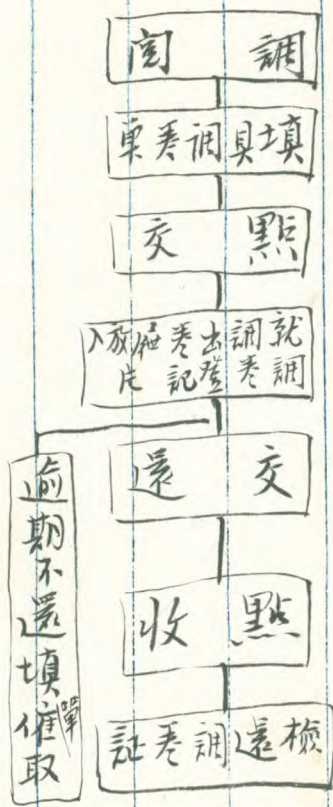 調閱
填具調卷單
點交
就調出卷放入
調卷登記片
交還
點收
檢還調卷証
逾期不還填催取單